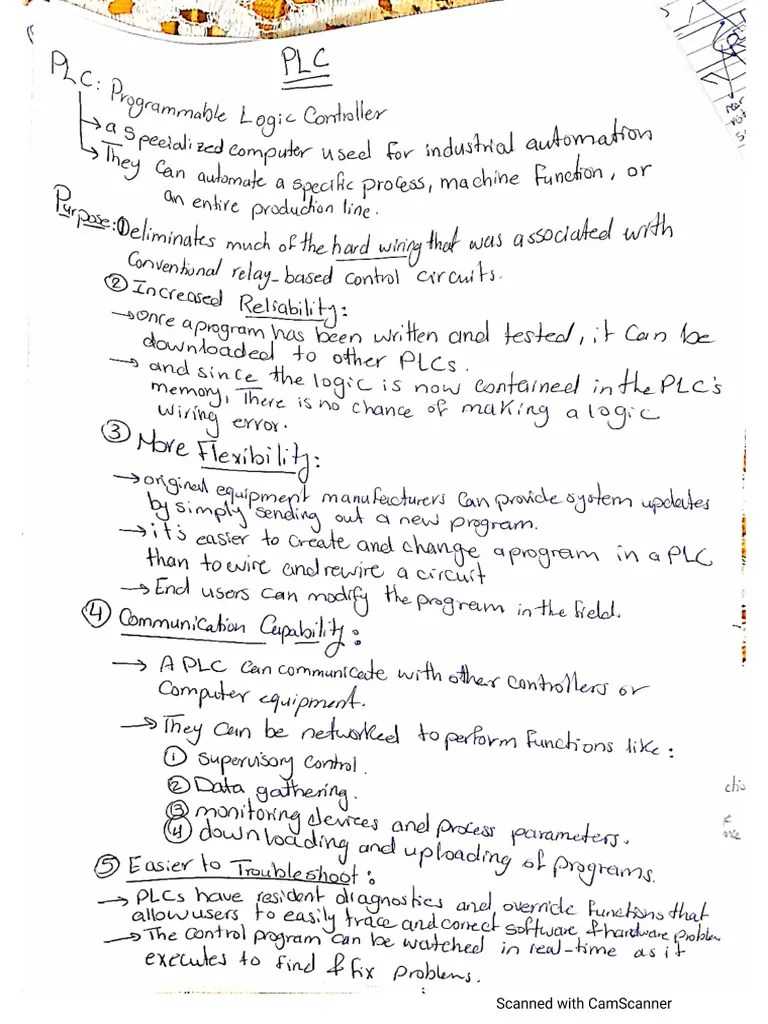 PLC
PLC: Programmable Logic Controller
→ a specialized computer used for industrial automation
→ They can automate a specific process, machine function, or
an entire production line.
Purpose: ① Eliminates much of the hard wiring that was associated with
Conventional relay-based control circuits.
② Increased Reliability:
→ once a program has been written and tested, it can be
downloaded to other PLCs.
→ and since the logic is now contained in the PLC's
memory, There is no chance of making a logic
wiring error.
③ More Flexibility:
→ original equipment manufacturers can provide system updates
by simply sending out a new program.
→ it's easier to create and change a program in a PLC
than to wire and rewire a circuit
→ End users can modify the program in the field.
④ Communication Capability:
→ A PLC can communicate with other controllers or
Computer equipment.
→ They can be networked to perform functions like:
① supervisory control.
② Data gathering.
③ monitoring devices and process parameters.
④ downloading and uploading of programs.
⑤ Easier to Troubleshoot:
→ PLCs have resident diagnostics and override functions that
allow users to easily trace and correct software & hardware problem
→ The control program can be watched in real-time as it
executes to find & fix problems.
Scanned with CamScanner